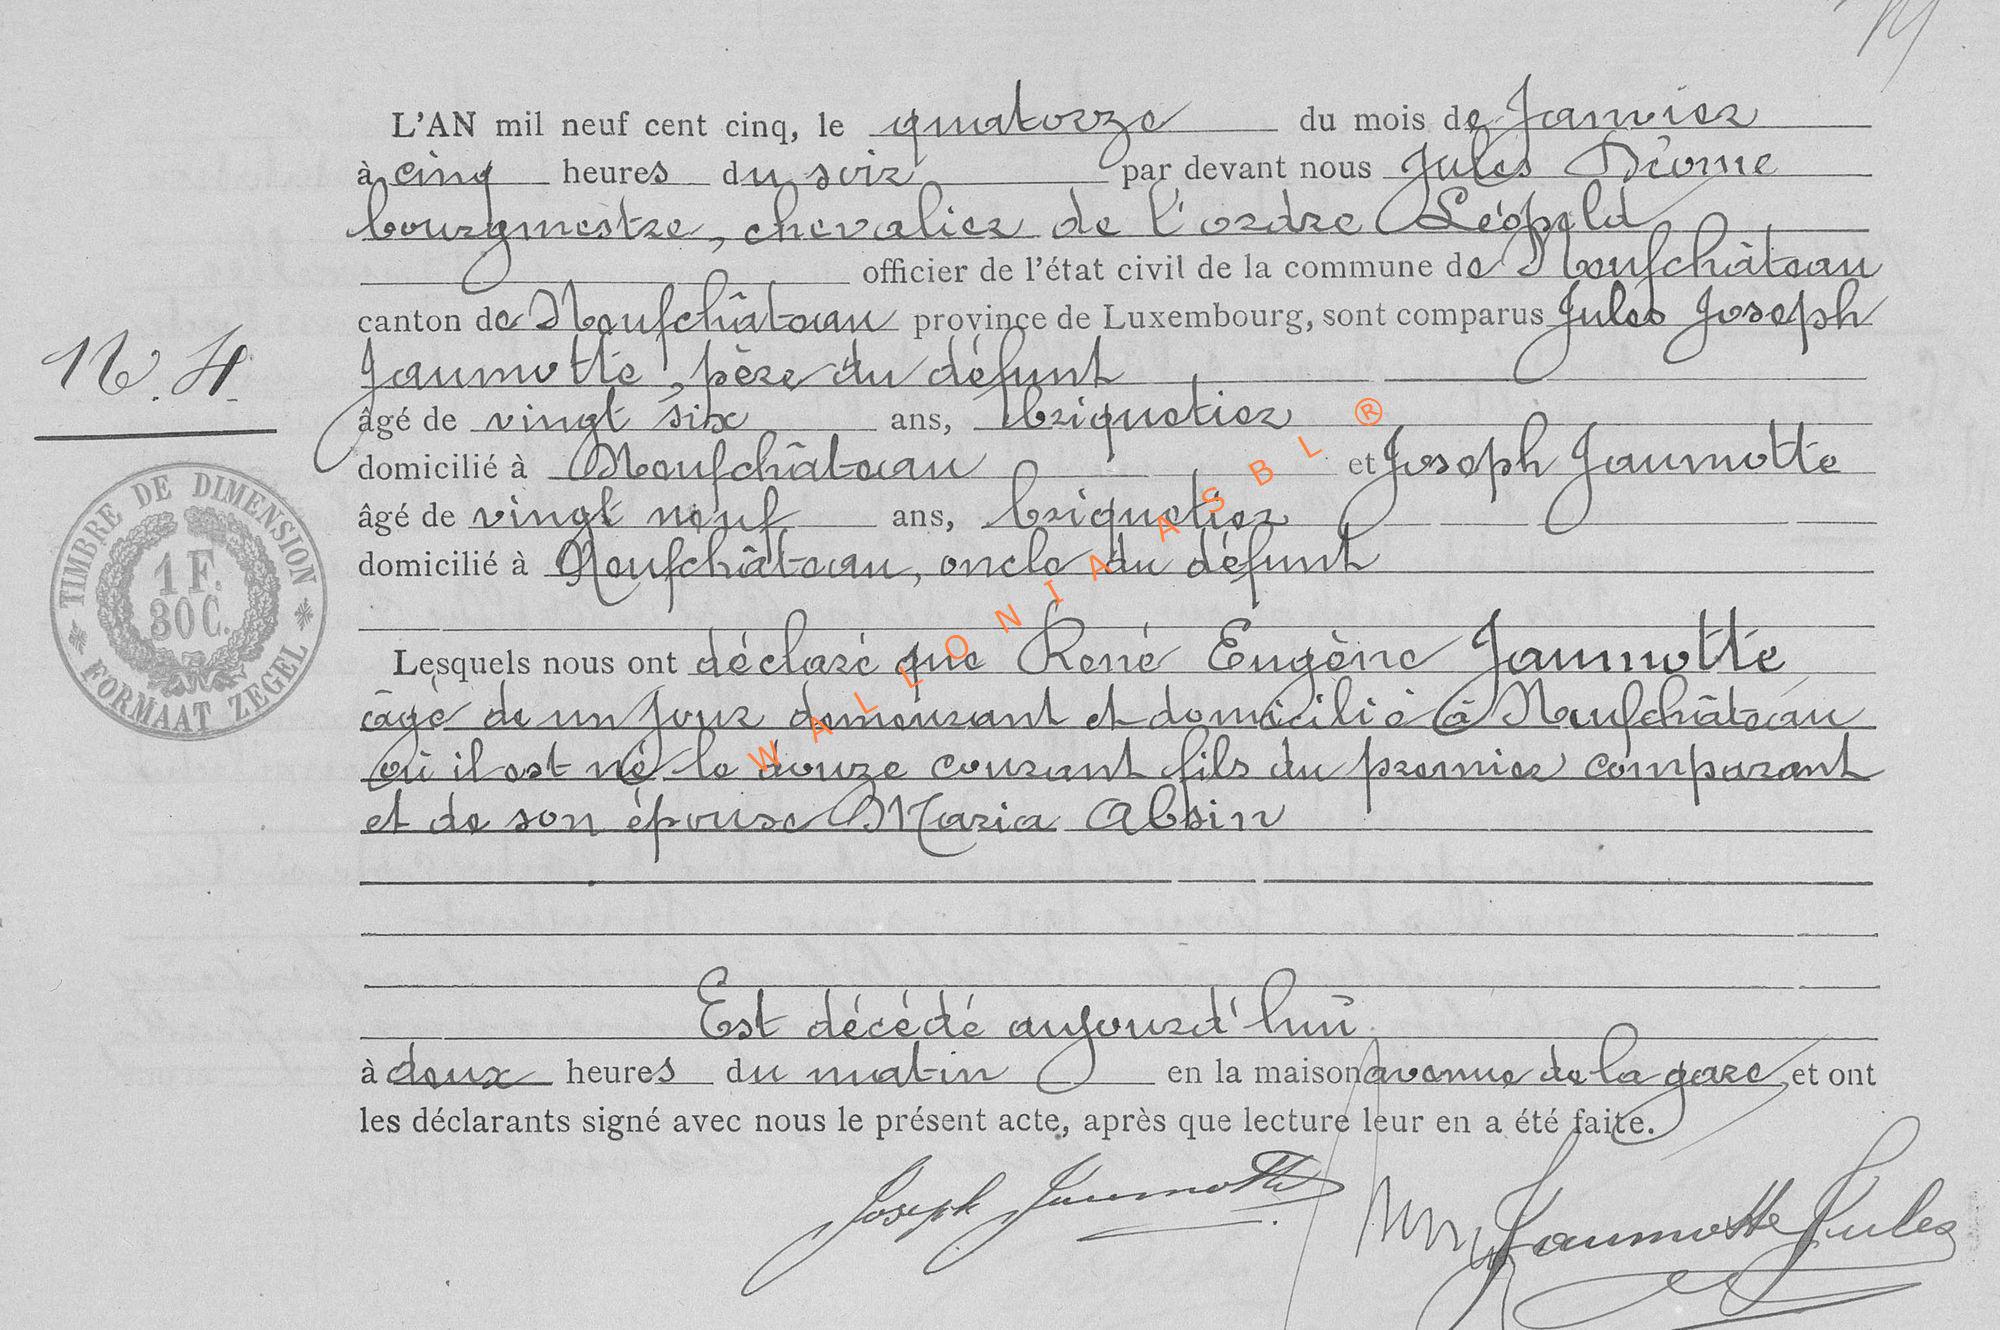 L'AN mil neuf cent cinq, le quatorze du mois de Janvier
à cinq heures du soir par devant nous Jules
bourgmestre, chevalier de l'ordre Léopold
officier de l'état civil de la commune de Neufchâteau
canton de Neufchâteau province de Luxembourg, sont comparus Jules Joseph
Jaumotte, père du défunt
N. 4.
âgé de vingt six ans, briquetier
domicilié à Neufchâteau et Joseph Jaumotte
âgé de vingt neuf ans, briquetier
domicilié à Neufchâteau, oncle du défunt
TIMBRE DE DIMENSION
1 F. 30 C.
FORMAAT ZEGEL
Lesquels nous ont déclaré que René Eugène Jaumotte
âgé de un jour demeurant et domicilié à Neufchâteau
où il est né le douze courant fils du premier comparant
et de son épouse Maria Absin
Est décédé aujourd'hui
à deux heures du matin en la maison avenue de la gare, et ont
les déclarants signé avec nous le présent acte, après que lecture leur en a été faite.
Joseph Jaumotte
Jaumotte Jules
WALLONIA ASBL ®